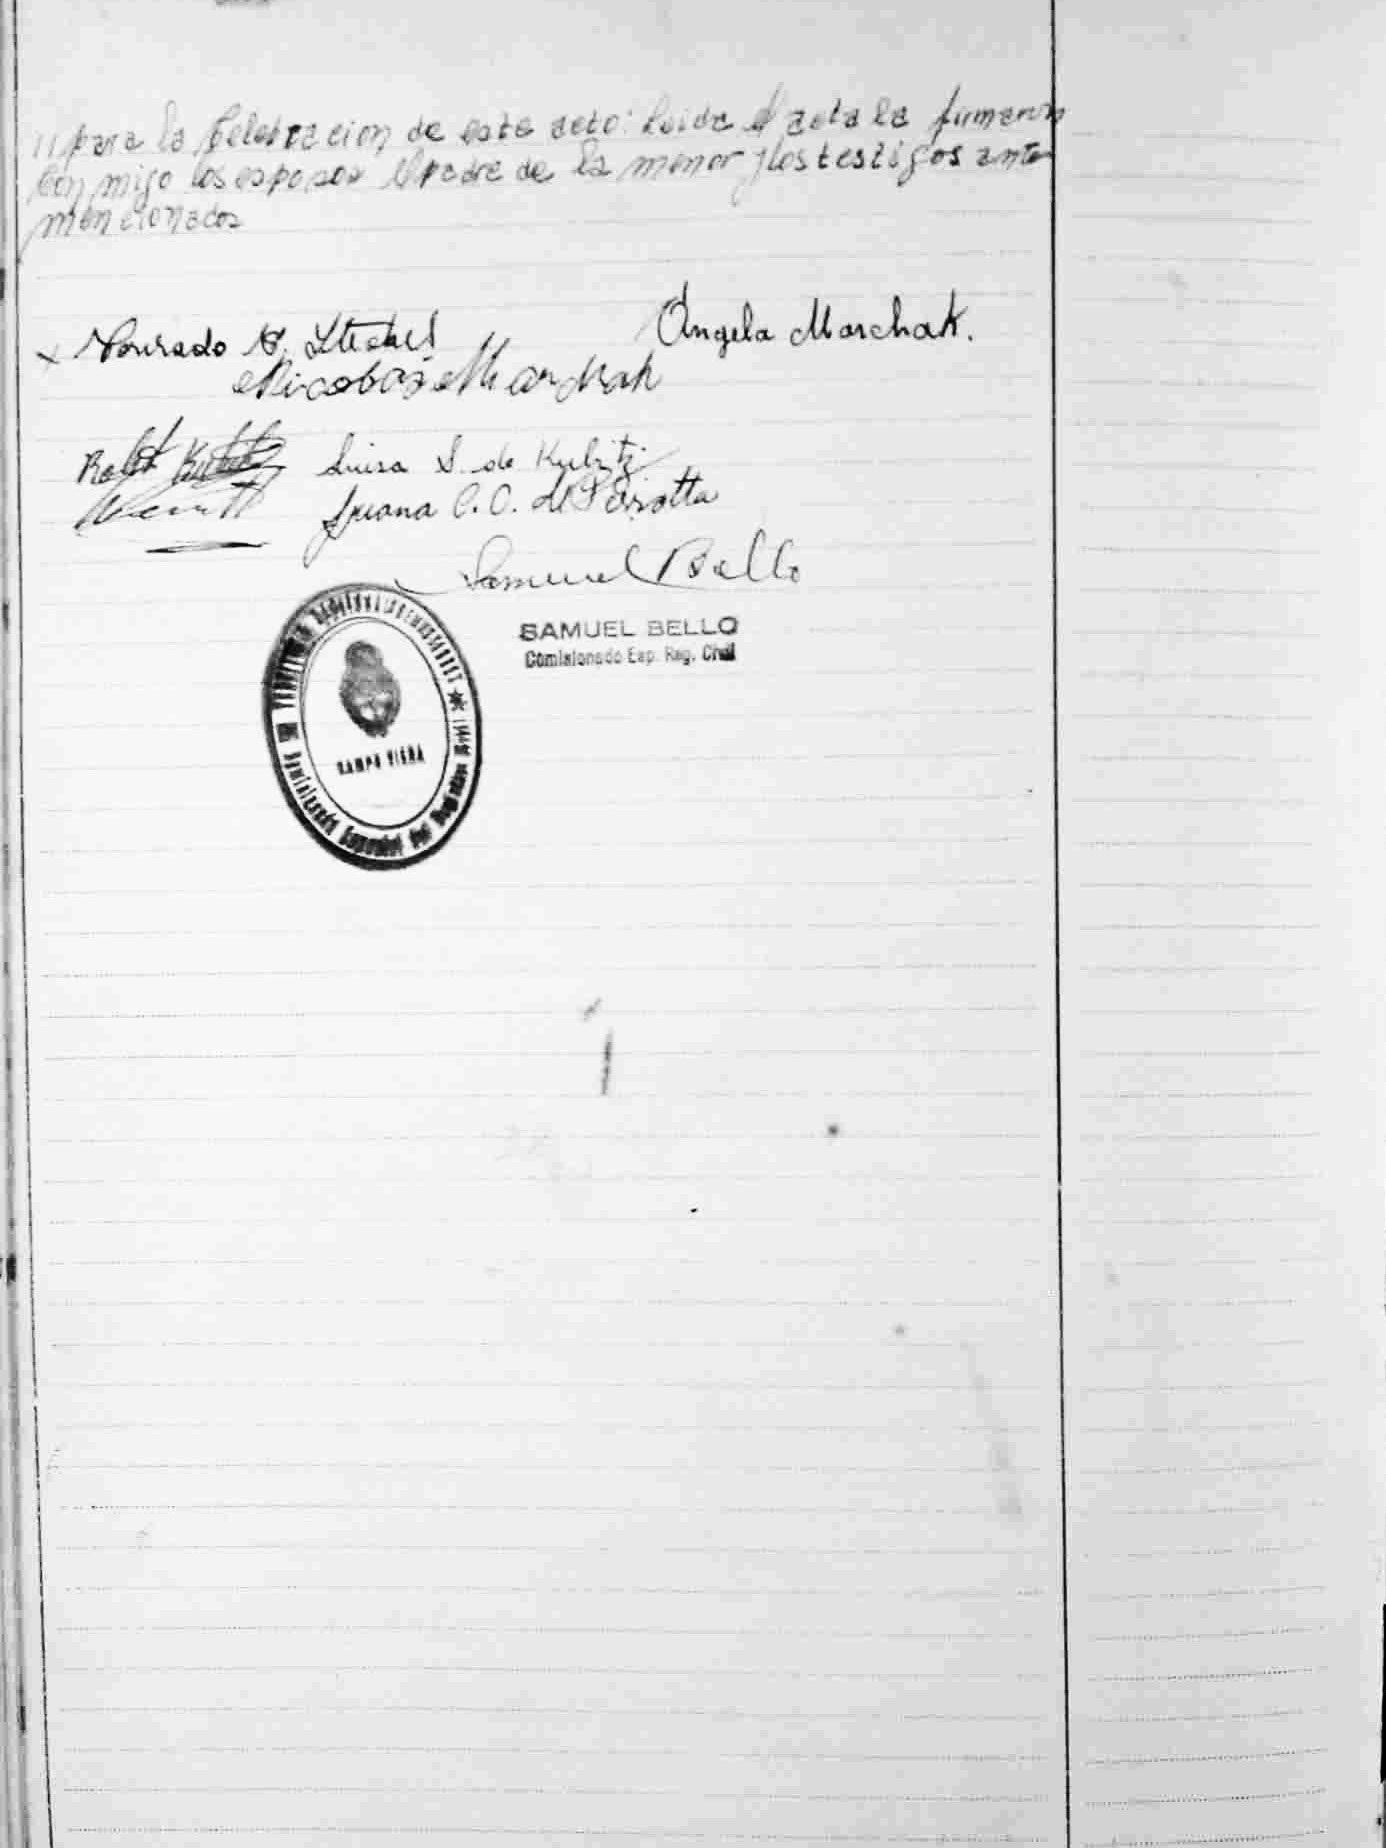 para la Celebracion de este acto: Leida el acta la firmaron
con migo los esposos el padre de la menor y los testigos ante
mencionados
Angela Marchak.
Nicolas Marchak
Luisa S. de Kubitz
Juana C. C. de Peirotta
Samuel Bello
SAMUEL BELLO
Comisionado Esp. Reg. Civil
CAMPO VIERA